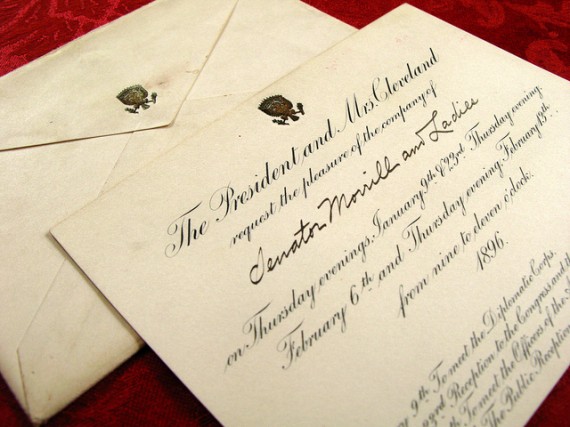 The President and Mrs. Cleveland
request the pleasure of the company of
Senator Morrill and Ladies
on Thursday evenings, January 9th & 23rd, Thursday evening,
February 6th and Thursday evening, February 13th
from nine to eleven o'clock.
1896.
9th To meet the Diplomatic Corps.
23rd Reception to the Congress and the
To meet the Officers of the
The Public Reception